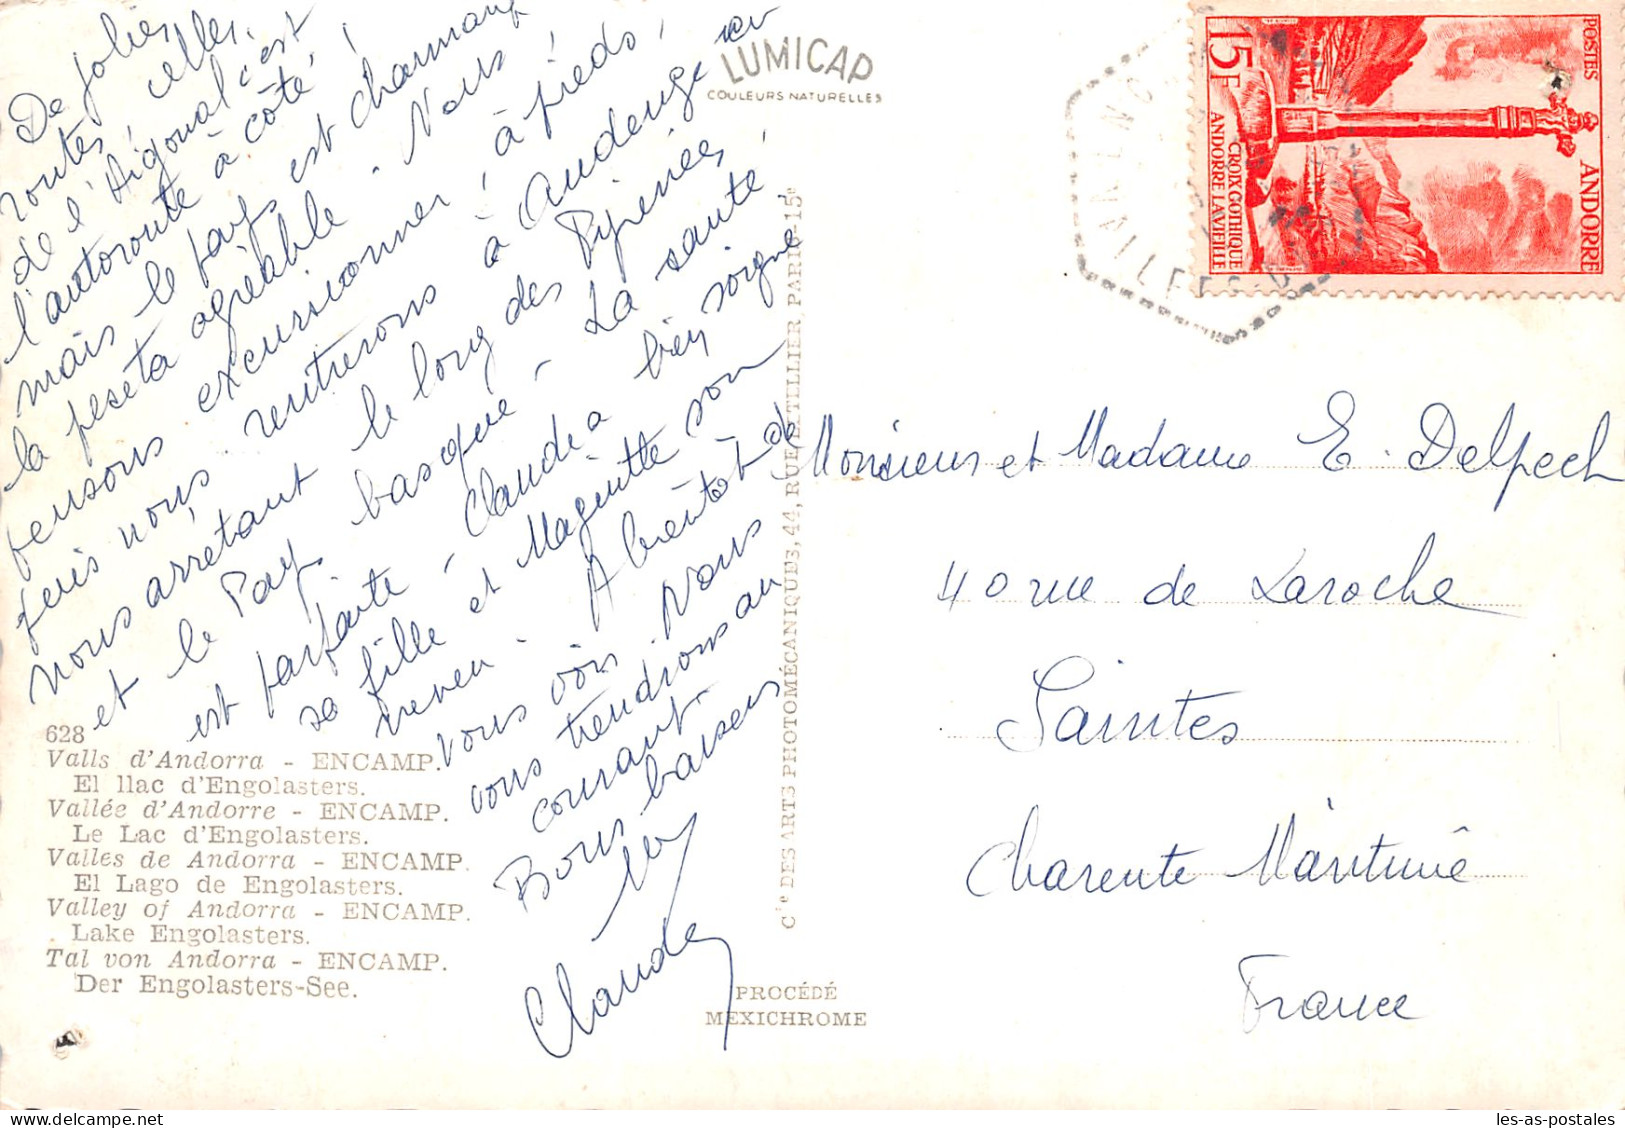 De jolies
routes, celles
de l'Aigoual c'est
l'autoroute à côté !
mais le pays est charmant
la peseta agréable. Nous
pensons excursionner à pieds,
puis nous rentrerons à Audenge en
nous arrêtant le long des Pyrénées
et le Pays basque. La santé
est parfaite. Claude a bien soigné
sa fille et Maguitte son
neveu. A bientôt de
vous voir. Nous
vous tiendrons au
courant.
Bons baisers
Claude
LUMICAP
COULEURS NATURELLES
628
Valls d'Andorra - ENCAMP.
El llac d'Engolasters.
Vallée d'Andorre - ENCAMP.
Le Lac d'Engolasters.
Valles de Andorra - ENCAMP.
El Lago de Engolasters.
Valley of Andorra - ENCAMP.
Lake Engolasters.
Tal von Andorra - ENCAMP.
Der Engolasters-See.
Cie DES ARTS PHOTOMÉCANIQUES, 44, RUE LETELLIER, PARIS-15e
PROCÉDÉ
MEXICHROME
POSTES
15F
ANDORRE
CROIX GOTHIQUE
ANDORRE LA VIEILLE
Monsieur et Madame E. Delpech
40 rue de Laroche
Saintes
Charente Maritime
France
les-as-postales